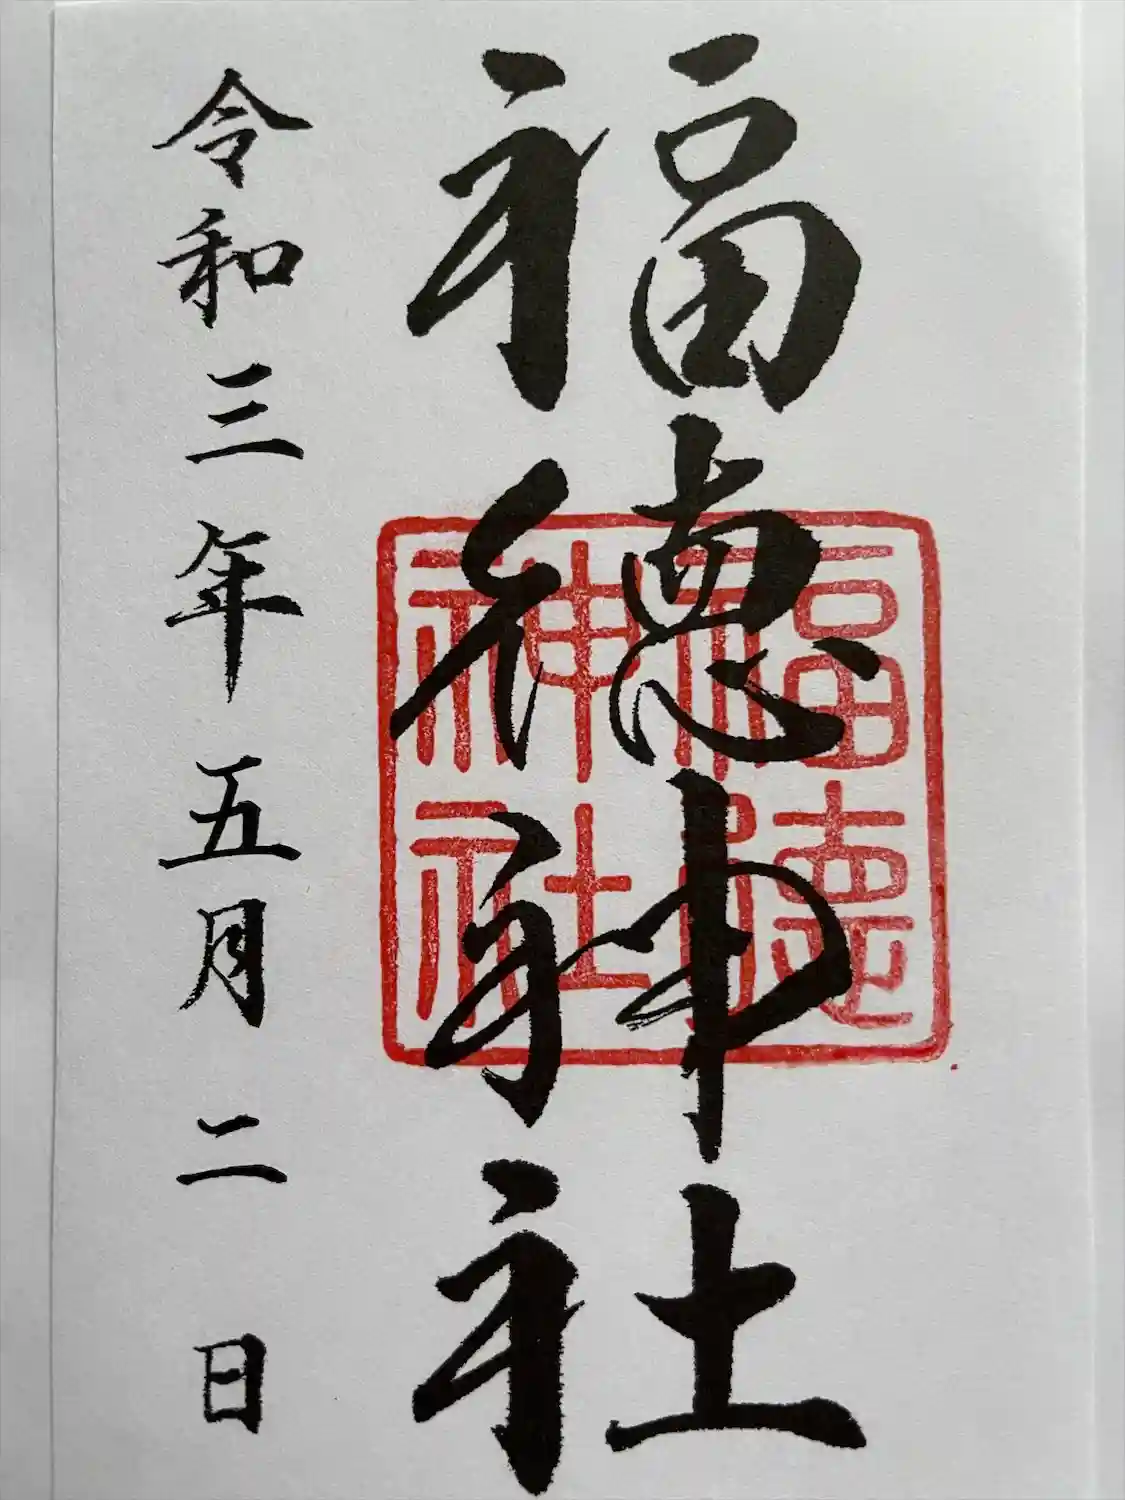 福徳神社
福徳神社
令和三年五月二日